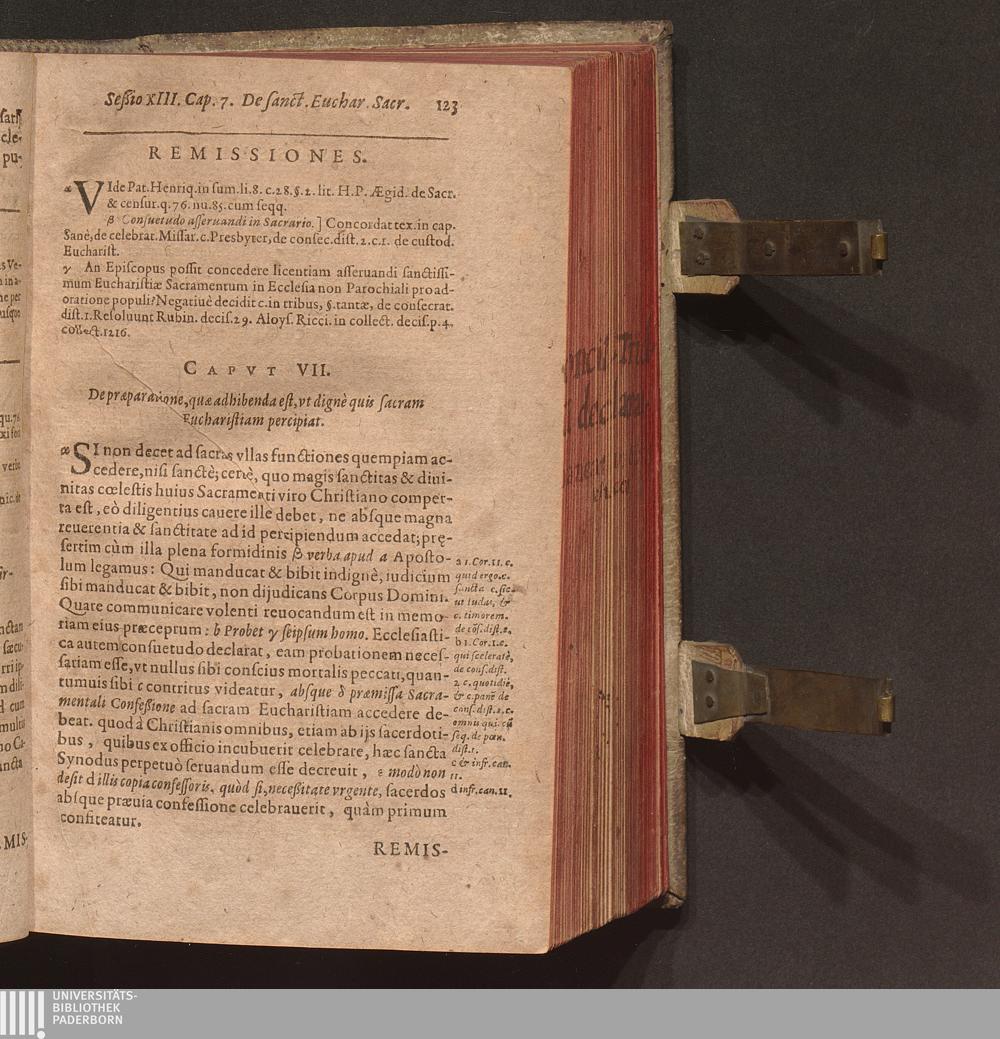 Seßio XIII. Cap. 7. De sanct. Euchar. Sacr. 123
REMISSIONES.
α VIde Pat. Henriq. in sum. li. 8. c. 28. §. 2. lit. H. P. Ægid. de Sacr.
& censur. q. 76. nu. 85. cum seqq.
β Consuetudo asseruandi in Sacrario. ] Concordat tex. in cap.
Sanè, de celebrat. Missar. c. Presbyter, de consec. dist. 2. c. 1. de custod.
Eucharist.
γ An Episcopus possit concedere licentiam asseruandi sanctissi-
mum Eucharistiæ Sacramentum in Ecclesia non Parochiali pro ad-
oratione populi? Negatiuè decidit c. in tribus, §. tantæ, de consecrat.
dist. 1. Resoluunt Rubin. decis. 29. Aloys. Ricci. in collect. decis. p. 4.
collect. 1216.
CAPVT VII.
De præparatione, quæ adhibenda est, vt dignè quis sacram
Eucharistiam percipiat.
α SI non decet ad sacras vllas functiones quempiam ac-
cedere, nisi sanctè; certè, quo magis sanctitas & diui-
nitas cœlestis huius Sacramenti viro Christiano comper-
ta est, eò diligentius cauere ille debet, ne absque magna
reuerentia & sanctitate ad id percipiendum accedat; prę-
sertim cùm illa plena formidinis β verba apud a Aposto-
lum legamus: Qui manducat & bibit indignè, iudicium
sibi manducat & bibit, non dijudicans Corpus Domini.
Quare communicare volenti reuocandum est in memo-
riam eius præceptum: b Probet γ seipsum homo. Ecclesiasti-
ca autem consuetudo declarat, eam probationem neces-
sariam esse, vt nullus sibi conscius mortalis peccati, quan-
tumuis sibi c contritus videatur, absque δ præmissa Sacra-
mentali Confeßione ad sacram Eucharistiam accedere de-
beat. quod à Christianis omnibus, etiam ab ijs sacerdoti-
bus, quibus ex officio incubuerit celebrare, hæc sancta
Synodus perpetuò seruandum esse decreuit, ε modò non
desit d illis copia confessoris. quòd si, neceßitate vrgente, sacerdos
absque præuia confessione celebrauerit, quàm primum
confiteatur.
a 1. Cor. 11. c.
quid ergo. c.
sancta c. sic-
ut Iudas, &
c. timorem.
de cōs. dist. 2.
b 1. Cor. 1. c.
qui sceleratè,
de cons. dist.
2. c. quotidiè,
& c. panē de
cons. dist. 2. c.
omnis qui. cū
seq. de pœn.
dist. 1.
c & infr. can.
11.
d infr. can. 11.
REMIS-
MIS-
UNIVERSITÄTS-
BIBLIOTHEK
PADERBORN